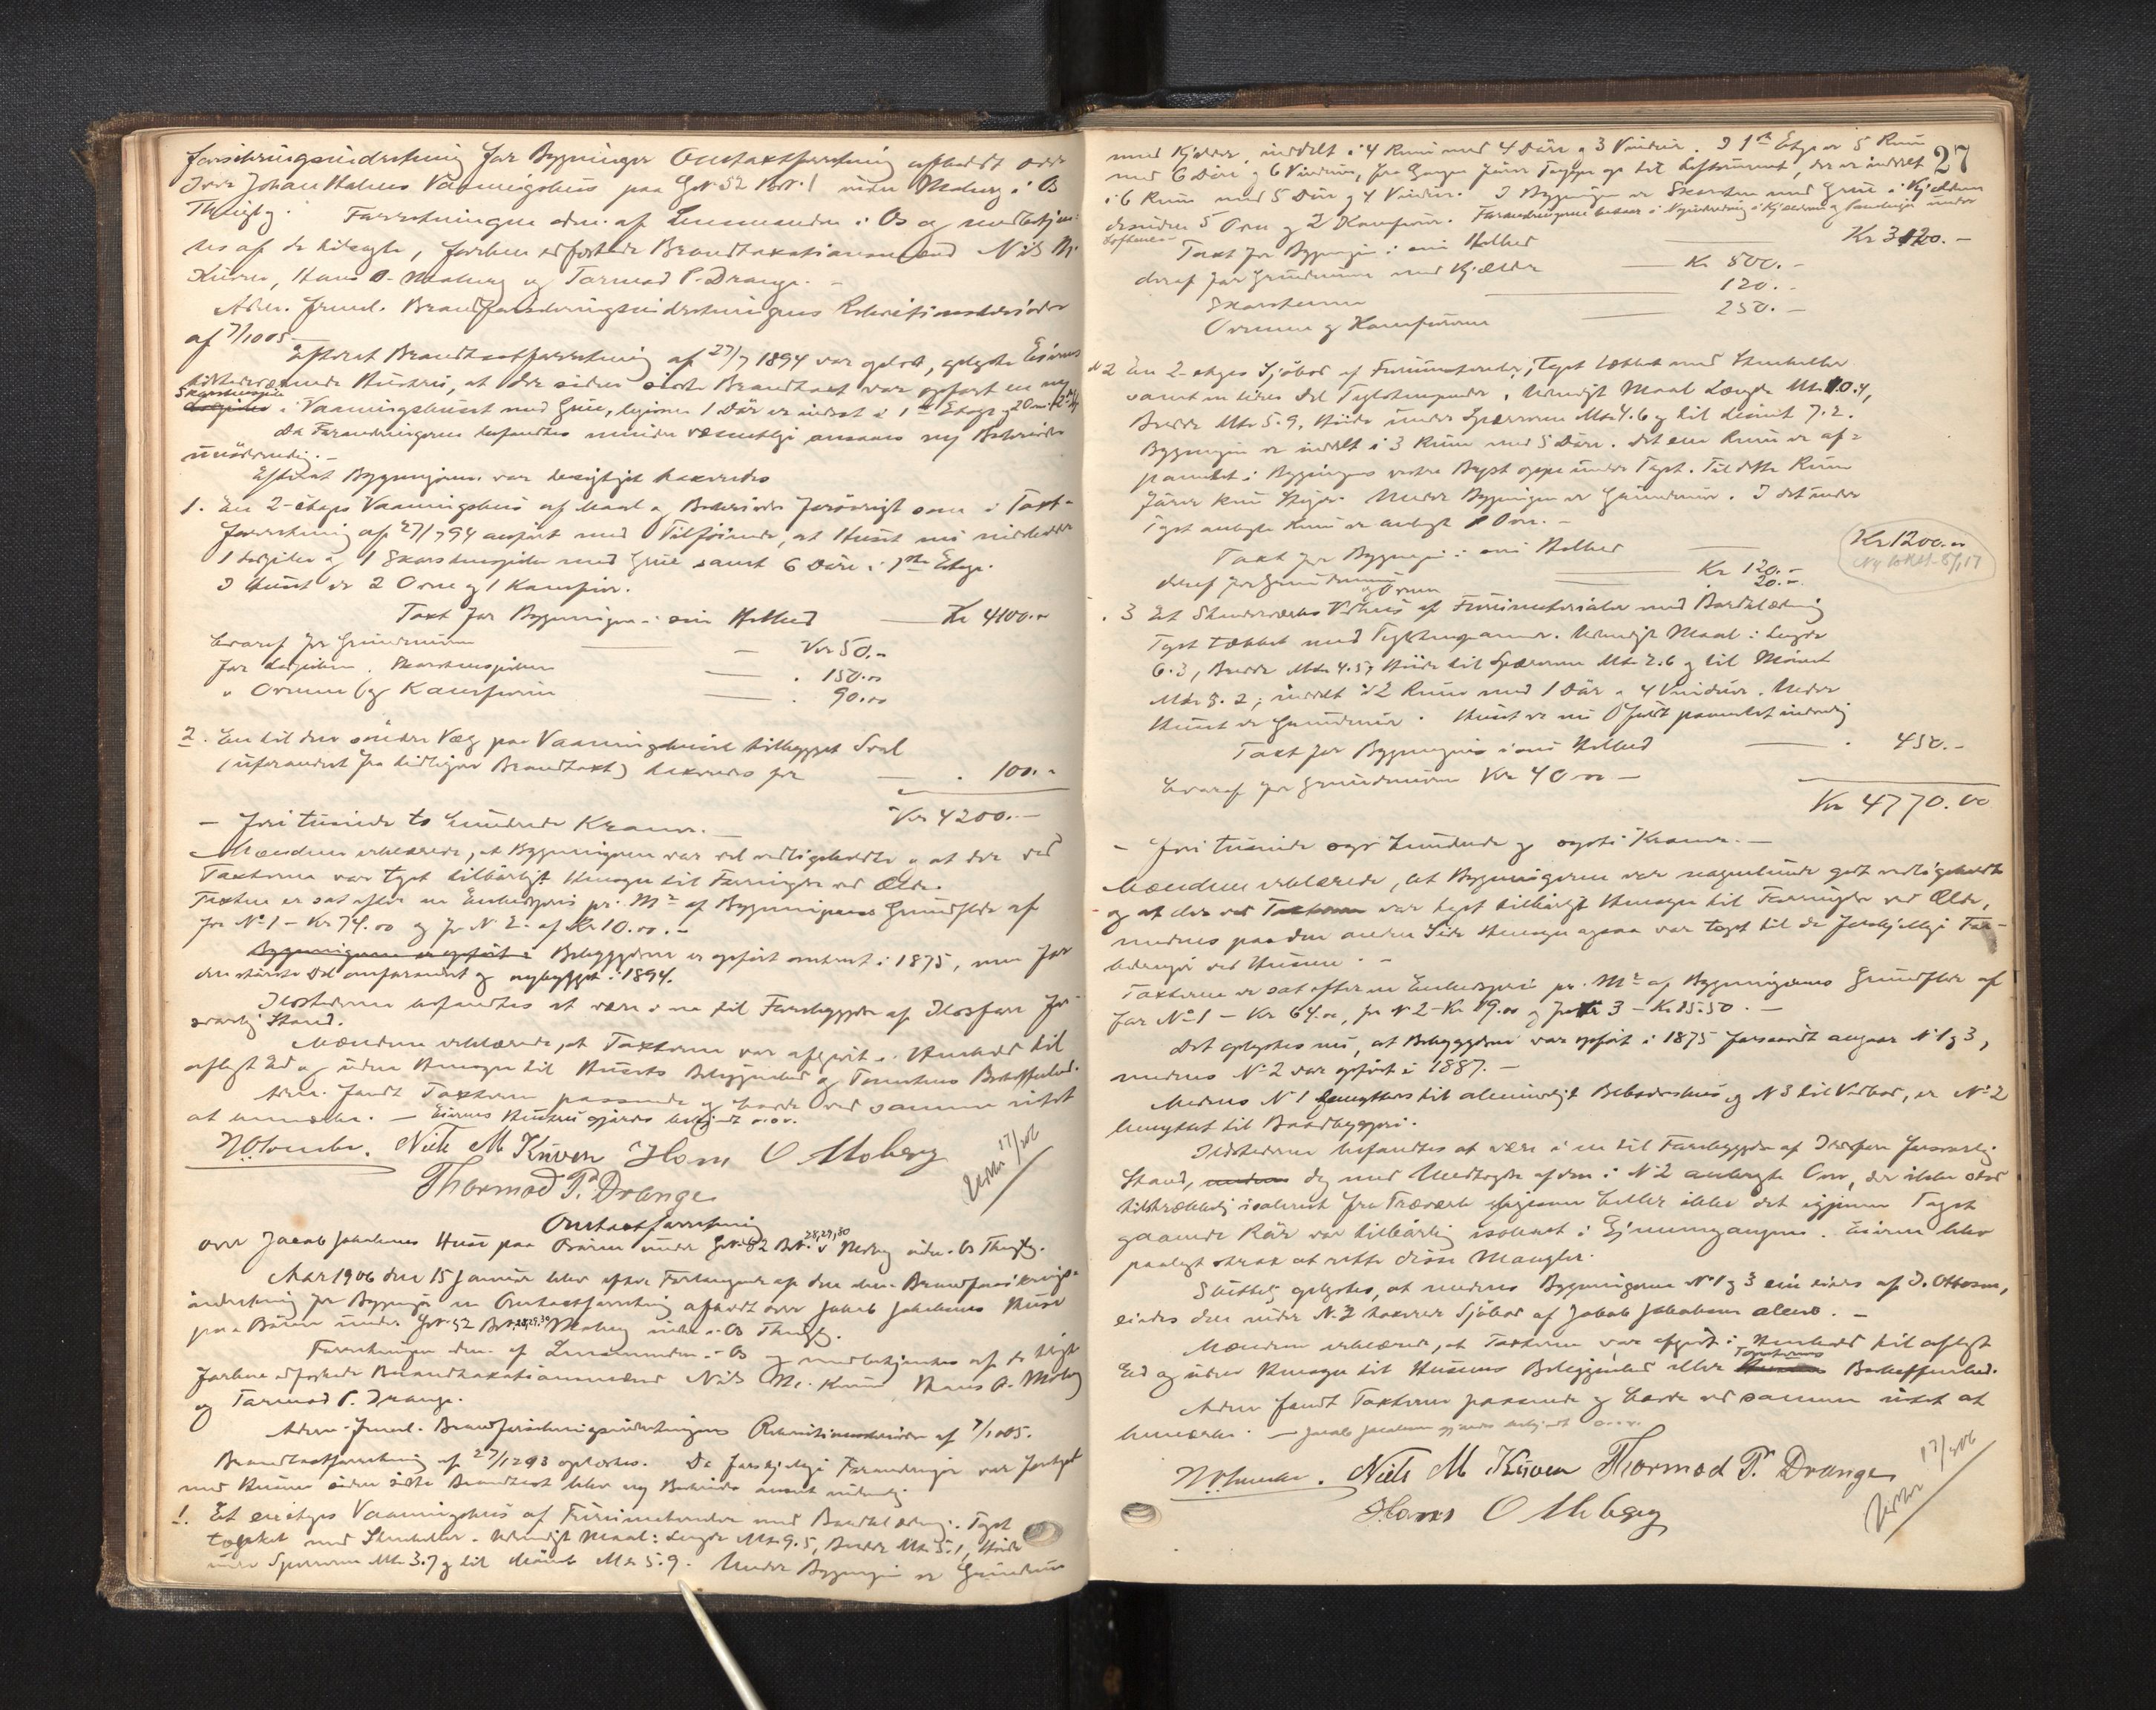 forsikringsindretning for Bygninger Omtaxtforretning afholdt over
Iver Johan Holms Vaaningshus paa Gr No 52 Br No 1 Moberg i Os
Thinglag. Forretningen adm. af Lensmanden i Os og medbetjen-
tes af de tiltagte, forhen edfæstede Brandtaxationsmænd Nils M.
Kuven, Hans O. Moberg og Tormod P. Drange. -
Adm. freml. Brandforsikringsindretningens Rekvisition
af 7/10 05
Efterat Brandtaxtforretning af 27/7 1894 var oplæst, oplyste Eierens
tilstedeværende Hustru, at der siden sidste Brandtaxt var opført en ny
Skorstenspibe i Vaaningshuset med Grue, 1 Dør er indsat i 1ste Etage
Da Forandringerne befandtes mindre væsentlige ansaaes ny Beskrivelse
unødvendig. -
Efterat Bygningerne var besigtiget taxeredes
1. En 2-etages Vaaningshus af Maal og Beskrivelse forøvrigt som i Taxt-
forretning af 27/7 94 anført med Tilføiende, at Huset nu indeholder
1 og 1 Skorstenspibe med Grue samt 6 Døre i 1ste Etage.
I Huset er 2 Ovne og 1 Komfur.
Taxt for Bygningen i sin Helhed Kr 4100.00
hvoraf for Grundmuren Kr 50.-
for Skorstenspiben 150.00
" Ovnene og Komfuren 90.00
2. En til den søndre Væg paa Vaaningshuset tilbygget Sval
(uforandret fra tidligere Brandtaxt) taxeredes for 100.-
Kr 4200.-
- Fire tusinde to hundrede Kroner. -
Mændene erklærede, at Bygningerne var vel vedligeholdte og at der ved
Taxterne var taget tilbørligt Hensyn til Forringelse ved Ælde.
Taxten er sat efter en Enhedspris pr. M2 af Bygningernes Grundflade af
for No 1 - Kr 74.00 og for No 2 af Kr 10.00. -
Bygningerne er opført i Bebyggelsen er opført omkrent i 1875, men for
den største Del omforandret og nybygget i 1894.
Ildstederne befandtes at være i en til Forebyggelse af Ildsfare for-
svarlig Stand.
Mændene erklærede, at Taxterne var afgivet i Henhold til
aflagt Ed og uden Hensyn til Husets Beliggenhed og Tomtens Beskaffenhed.
Adm. fandt Taxterne passende og havde ved samme intet
at bemærke. - Eierens Hustru gjordes bekjendt o.s.v.
Niels M Kuven Hans O Moberg
Thormod P. Drange
17/2 06
Omtaxtforretning
28, 29, 30
over Jacob Jakobsens Huse paa Børen under Gr No 52 Br No Moberg inden Os Thinglag.
Aar 1906 den 15 Januar blev efter Forlangende af den alm. Brandforsikrings-
indretning for Bygninger en Omtaxtforretning afholdt over Jakob Jakobsens Huse
paa Børen under Gr No 52 Br No 28,29,30 Moberg inden Os Thinglag.
Forretningen adm. af Lensmanden i Os og medbetjentes af de tiltagte
forhen edfæstede Brandtaxationsmænd Nils M. Kuven Hans O. Moberg
og Tormod P. Drange.
Adm. freml. Brandforsikringsindretningens Rekvisition af 7/10 05.
Brandtaxtforretning af 27/12 93 oplæstes. Da forskjellige Forandringer var foretaget
med Husene siden sidste Brandtaxt blev ny Beskrivelse anseet nødvendig.
1. Et enetages Vaaningshus af Furumaterialer med Bordklædning. Taget
tækket med Stenheller. Udvendigt Maal: Længde Mtr 9.5, Bredde Mtr 5.1, Høide
under Sperrerne Mtr 3.7 og til Mønet Mtr 5.9. Under Bygningen er Grundmur
27
med Kjælder, inddelt i 4 Rum med 4 Døre og 3 Vinduer. I 1ste Etage er 5 Rum
med 6 Døre og 6 Vinduer, fra Gangen fører Trappe op til Loftsrummet, der er inddelt
i 6 Rum med 5 Døre og 4 Vinduer. I Bygningen er Skorsten med Grue i Kjælderen
desuden 5 Ovne og 2 Komfurer. Forandringerne bestaar i Nyindredning i Kjælderen og Paneling under
Loftene.
Taxt for Bygningen i sin Helhed Kr 3120.-
deraf for Grundmuren med Kjælder Kr 500.-
Skorstenen 120.-
Ovnene og Komfurene 250.-
2 En 2-etages Sjøbod af Furumaterialer, Taget tækket med Stenheller
samt en liden Del Taglstenspander. Udvendigt Maal Længde Mtr 10.4,
Bredde Mtr 5.9, Høide under Sperrerne Mtr 4.6 og til Mønet 7.2.
Bygningen er inddelt i 3 Rum med 5 Døre. Det ene Rum er af-
panelet i Bygningens vestre Bust oppe under Taget. Til dette Rum
fører kun Stige. Under Bygningen er Grundmur. I det under
Taget anbragte Rum er anbragt 1 Ovn. -
Taxt for Bygningen i sin Helhed Kr 1200.00
deraf for Grundmuren Kr 120.-
og Ovnen 20.-
3 Et Stenderværks Vedhus af Furumaterialer med Bordklædning
Taget tækket med Taglstenspander. Udvendigt Maal: Længde
6.3, Bredde Mtr 4.5, Høide til Sperrerne Mtr 2.6 og til Mønet
Mtr 5.2; inddelt i 2 Rum med 1 Dør og 4 Vinduer. Under
Huset er Grundmur. Huset er nu panelet indvendig
Taxt for Bygningen i sin Helhed 450.-
hvoraf for Grundmuren Kr 40.00 -
Kr 4770.00
- Fire tusinde syv hundrede og sytti Kroner. -
Mændene erklærede, at Bygningerne var nogenlunde godt vedligeholdte
og at der ved Taxterne var taget tilbørligt Hensyn til Forringelse ved Ælde,
medens paa den anden Side Hensyn ogsaa var taget til de forskjellige For-
bedringer ved Husene. -
Taxterne er sat efter en Enhedspris pr. M2 af Bygningernes Grundflade af
for No 1 - Kr 64.00, for No 2 - Kr 19.00 og for No 3 - Kr 15.50. -
Det oplystes nu, at Bebyggelsen var opført i 1875 forsaavidt angaar No 1 og 3,
medens No 2 var opført i 1887. -
Medens No 1 benyttes til almindeligt Beboelseshus og No 3 til Vedbod, er No 2
benyttet til Baadbyggeri.
Ildstederne befandtes at være i en til Forebyggelse af Ildsfare forsvarlig
Stand, dog med Undtagelse af den i No 2 anbragte Ovn, der ikke stod
tilstrækkelig isoleret fra Træværk ligesom heller ikke det igjennem Taget
gaaende Rør var tilbørlig isoleret i Gjennemgangen. Eieren blev
paalagt strax at rette disse Mangler.
Sluttelig oplystes, at medens Bygningerne No 1 og 3 eies af J. Ottosen,
eiedes den under No 2 taxerede Sjøbod af Jakob Jakobsen alene. -
Mændene erklærede, at Taxterne var afgivet i Henhold til aflagt
Ed og uden Hensyn til Husenes Beliggenhed eller Tomternes Beskaffenhed.
Adm fandt Taxterne passende og havde ved samme intet at
bemærke. - Jacob Jacobsen gjordes bekjendt o.s.v.
Niels M Kuven Thormod P. Drange
Hans O Moberg
17/2 06